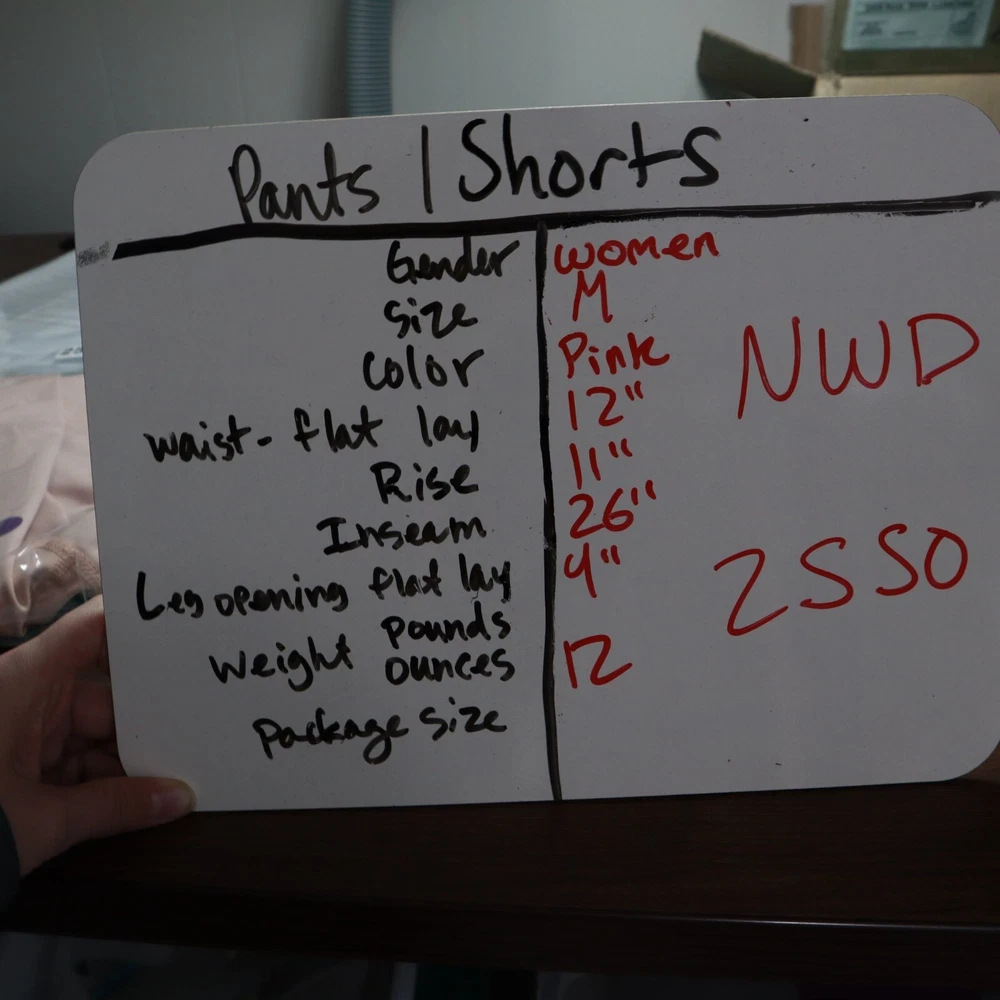 Pants | Shorts
Gender women
Size M
Color Pink
NWD
waist- flat lay 12"
Rise 11"
Inseam 26"
Leg opening flat lay 4"
2550
pounds
Weight ounces 12
package size